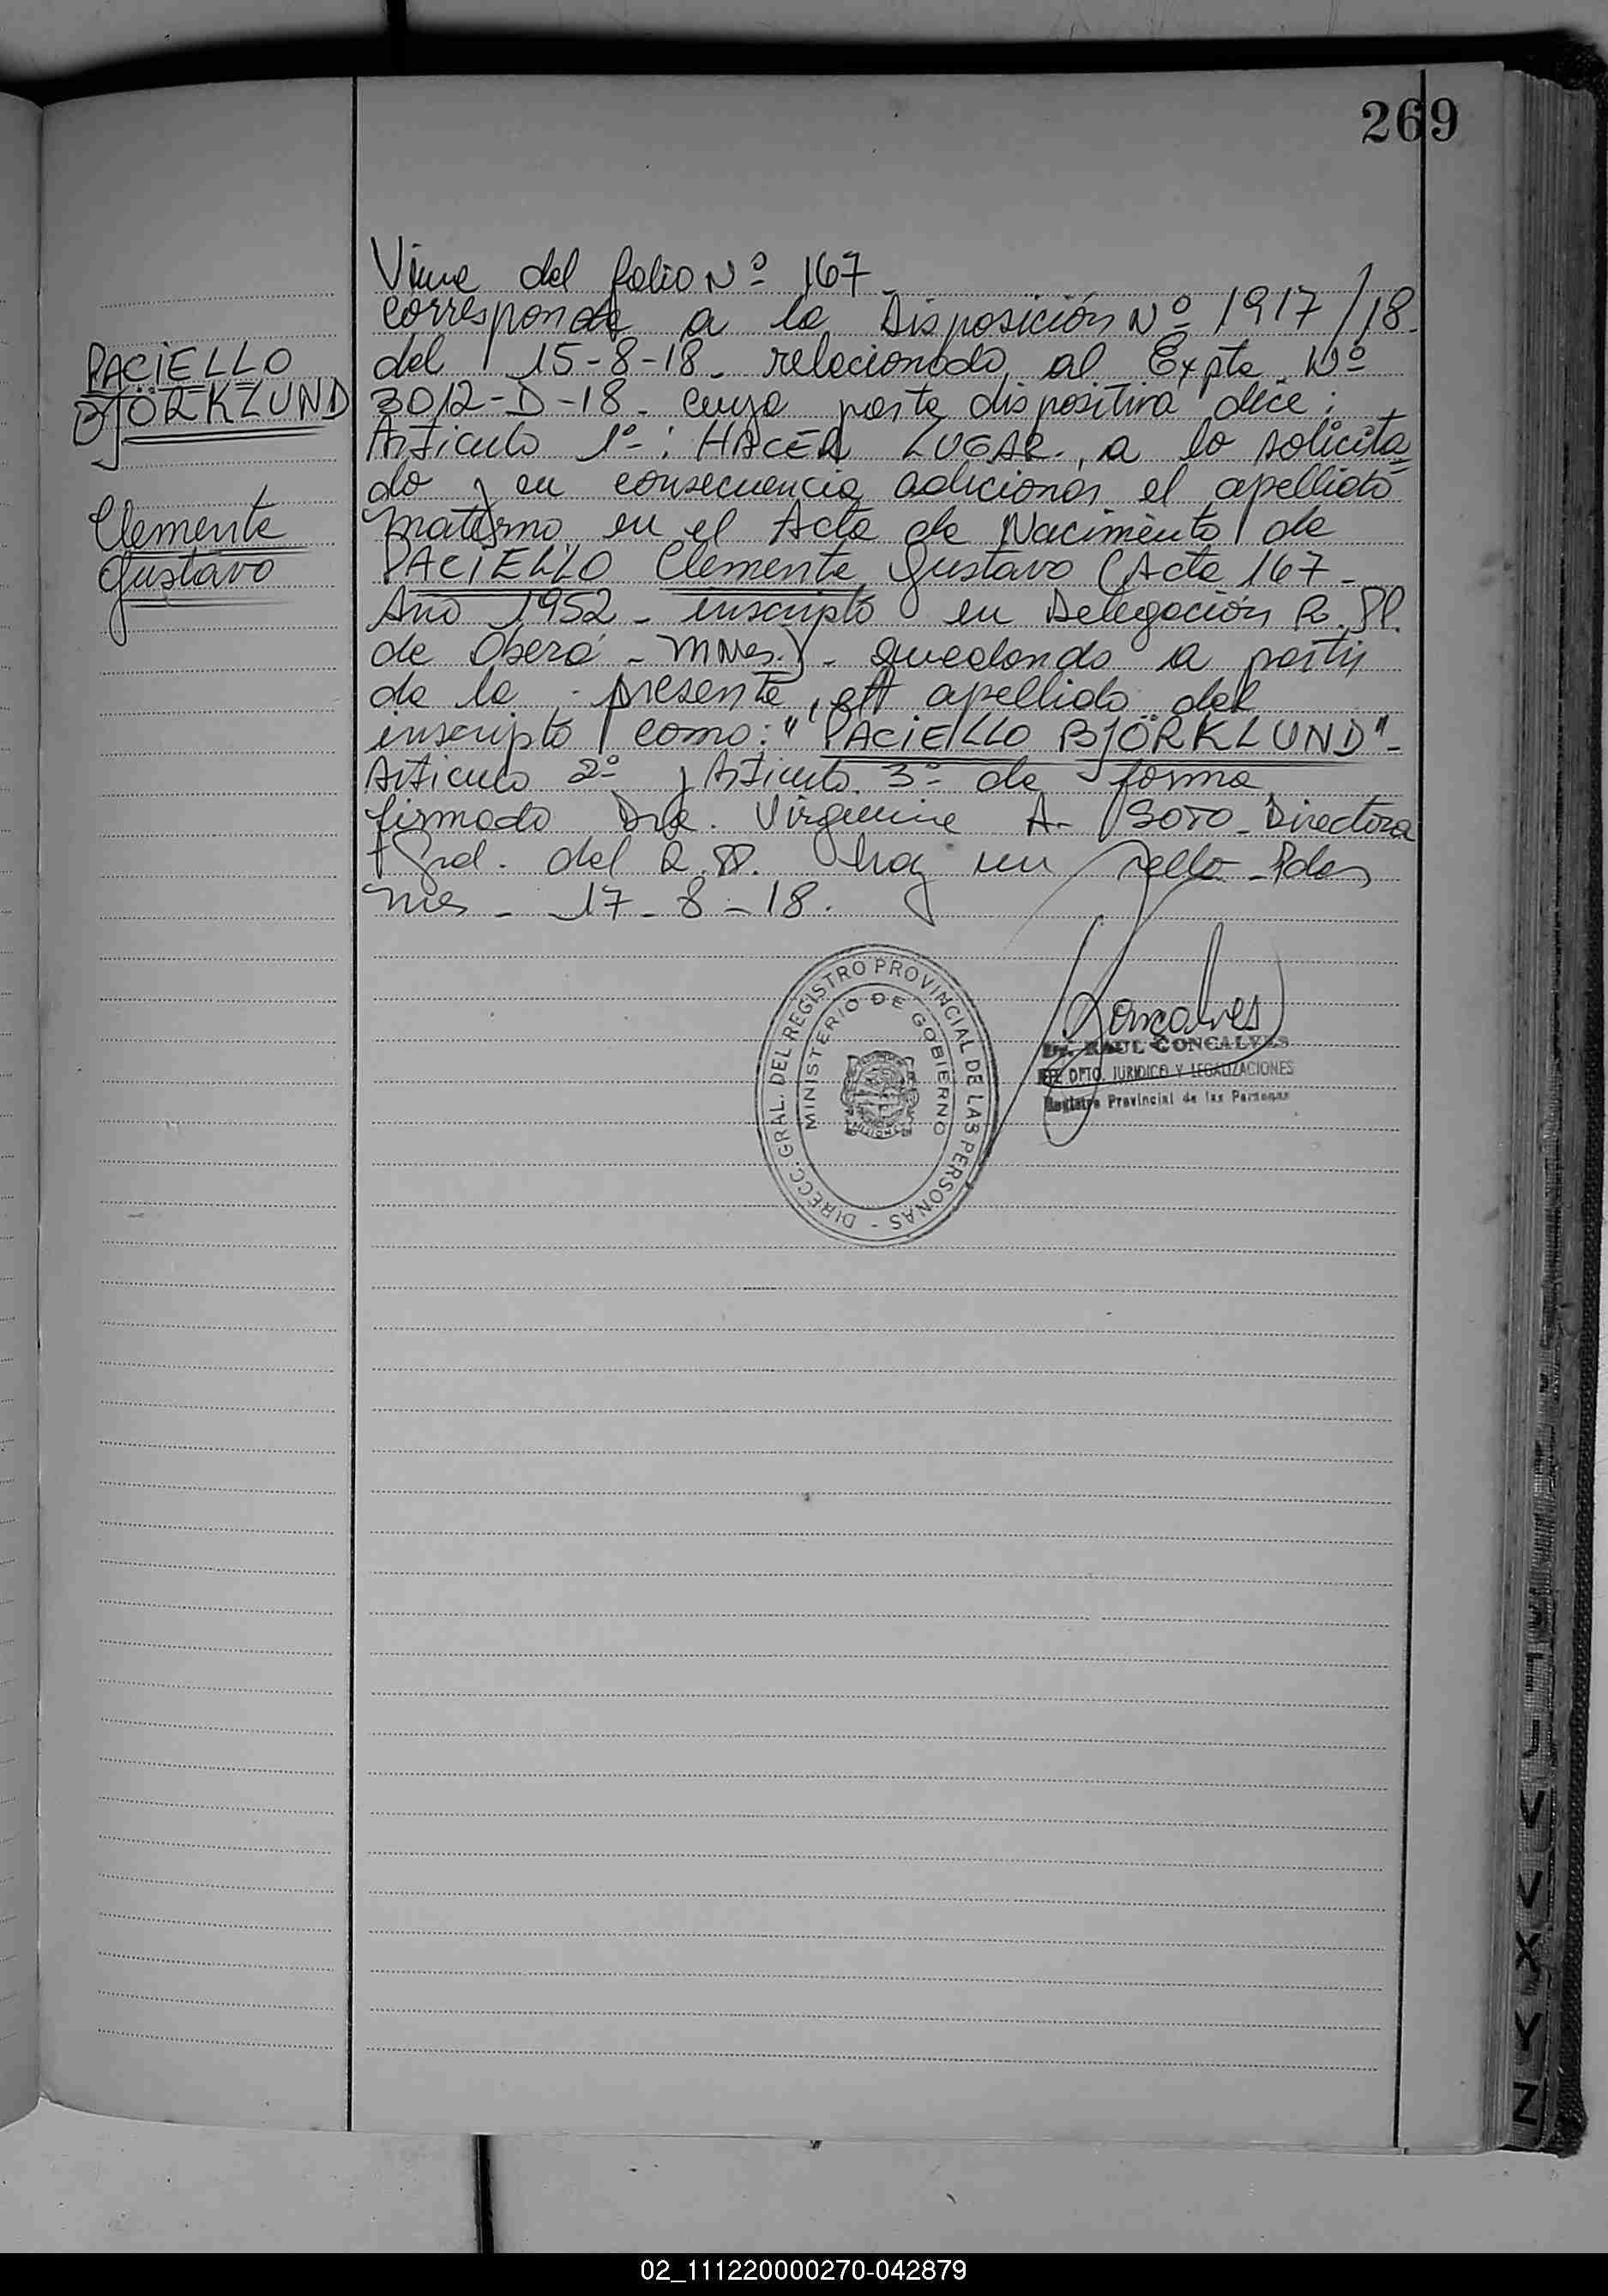 269
Viene del folio Nº 167 -
corresponde a la Disposición Nº 1917/18.
del 15-8-18 - relacionado al Expte Nº
3012-D-18 - cuya parte dispositiva dice:
Artículo 1º: HACER LUGAR, a lo solicita=
do y en consecuencia adicionar el apellido
materno en el Acta de Nacimiento de
PACIELLO Clemente Gustavo (Acta 167 -
Año 1952 - inscripto en Delegación R. PP.
de Oberá - Mnes.) - quedando a partir
de la presente, el apellido del
inscripto como: "PACIELLO BJÖRKLUND" -
Artículo 2º y Artículo 3º de forma
firmado Dra. Virginia A. SOTO - Directora
Gral. del R. PP. hay un sello - Pdas
Mes - 17-8-18.
PACIELLO
BJÖRKLUND
Clemente
Gustavo
DIRECC. GRAL. DEL REGISTRO PROVINCIAL DE LAS PERSONAS -
MINISTERIO DE GOBIERNO
MISIONES
Goncalves
Dr. RAUL GONCALVES
DPTO. JURIDICO Y LEGALIZACIONES
Registro Provincial de las Personas
02_111220000270-042879